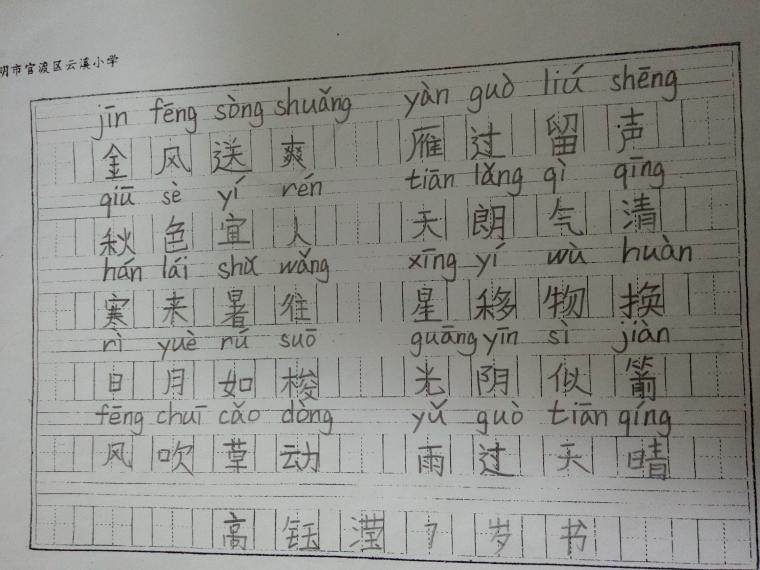 明市官渡区云溪小学
jīn fēng sòng shuǎng yàn guò liú shēng
金风送爽 雁过留声
qiū sè yí rén tiān lǎng qì qīng
秋色宜人 天朗气清
hán lái shǔ wǎng xīng yí wù huàn
寒来暑往 星移物换
rì yuè rú suō guāng yīn sì jiàn
日月如梭 光阴似箭
fēng chuī cǎo dòng yǔ guò tiān qíng
风吹草动 雨过天晴
高钰滢 7岁书